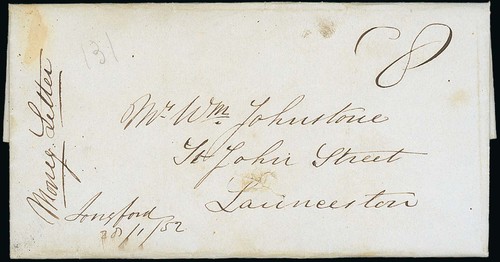 (3)
8
Money Letter
Mr. Wm. Johnstone
St John Street
Launceston
Longford
28/1/52